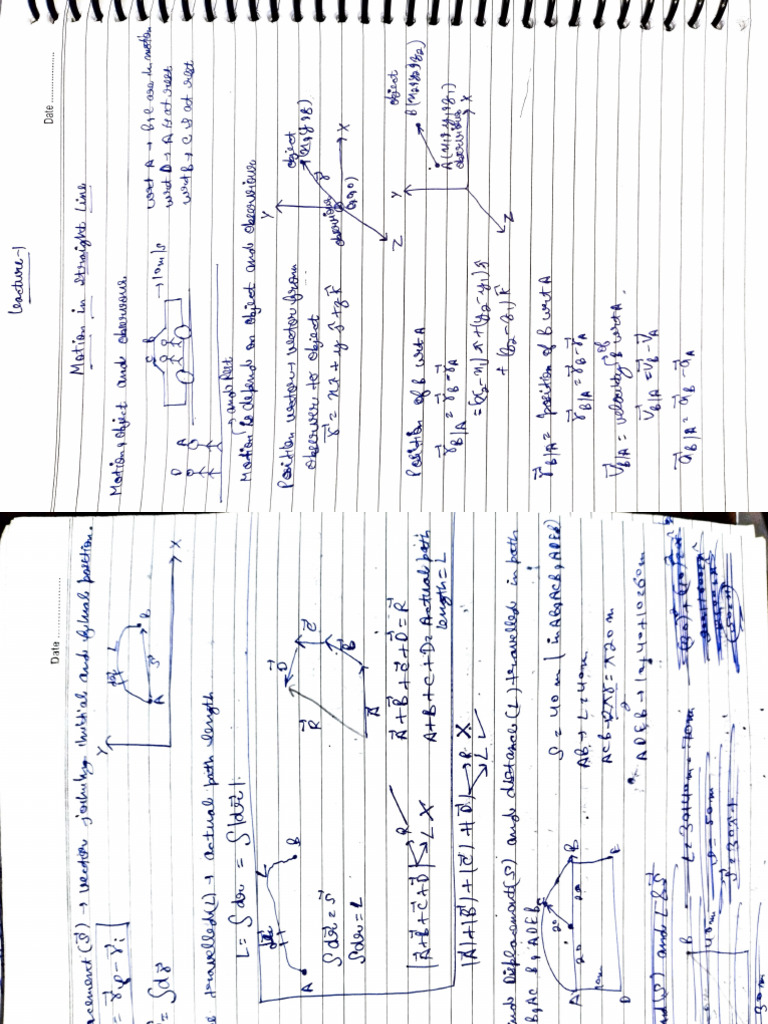 Lecture-1
Date
Motion in Straight Line
Motion, object and observer.
wrt A → B, C are in motion
wrt D → A is at rest
wrt B → C is at rest
→ 10 m/s
D A
B
and Rest
Motion is depend on object and observer
Position vector → vector from
observer to object
r⃗ = xî + yĵ + zk̂
Y
object
(x, y, z)
r⃗
observer
(0,0,0)
X
Z
Position of B wrt A
r⃗B/A = r⃗B - r⃗A
= (x2-x1)î + (y2-y1)ĵ
+ (z2-z1)k̂
Y
object
B(x2, y2, z2)
A(x1, y1, z1)
observer
X
Z
r⃗B/A = position of B wrt A
r⃗B/A = r⃗B - r⃗A
V⃗B/A = velocity of B wrt A.
V⃗B/A = V⃗B - V⃗A
a⃗B/A = a⃗B - a⃗A
Date
acement (S⃗) → vector joining initial and final position.
= r⃗f - r⃗i
= ∫dr⃗
Y
L
A
S⃗
B
X
e travelled (L) → actual path length
L = ∫dr = ∫|dr⃗|
A
B
∫dr⃗ = S⃗
∫dr = L
R⃗
D⃗
C⃗
B⃗
A⃗
A⃗+B⃗+C⃗+D⃗ = R⃗
A+B+C+D = Actual path
length = L
|A⃗+B⃗+C⃗+D⃗| → R ✓
→ L X
|A⃗|+|B⃗|+|C⃗|+|D⃗| → R X
→ L ✓
ind Displacement(S) and distance (L) travelled in path
B, ACB, ADEB
S = 40 m (in AB, ACB, ADEB)
AB → L = 40m
ACB → = π20 m
ADEB → 10+40+10 = 60m
A
B
C
20
20
10m
D
E
nd (S⃗) and L
B
40m
30m
L = 30+40m = 70m
S = 50m